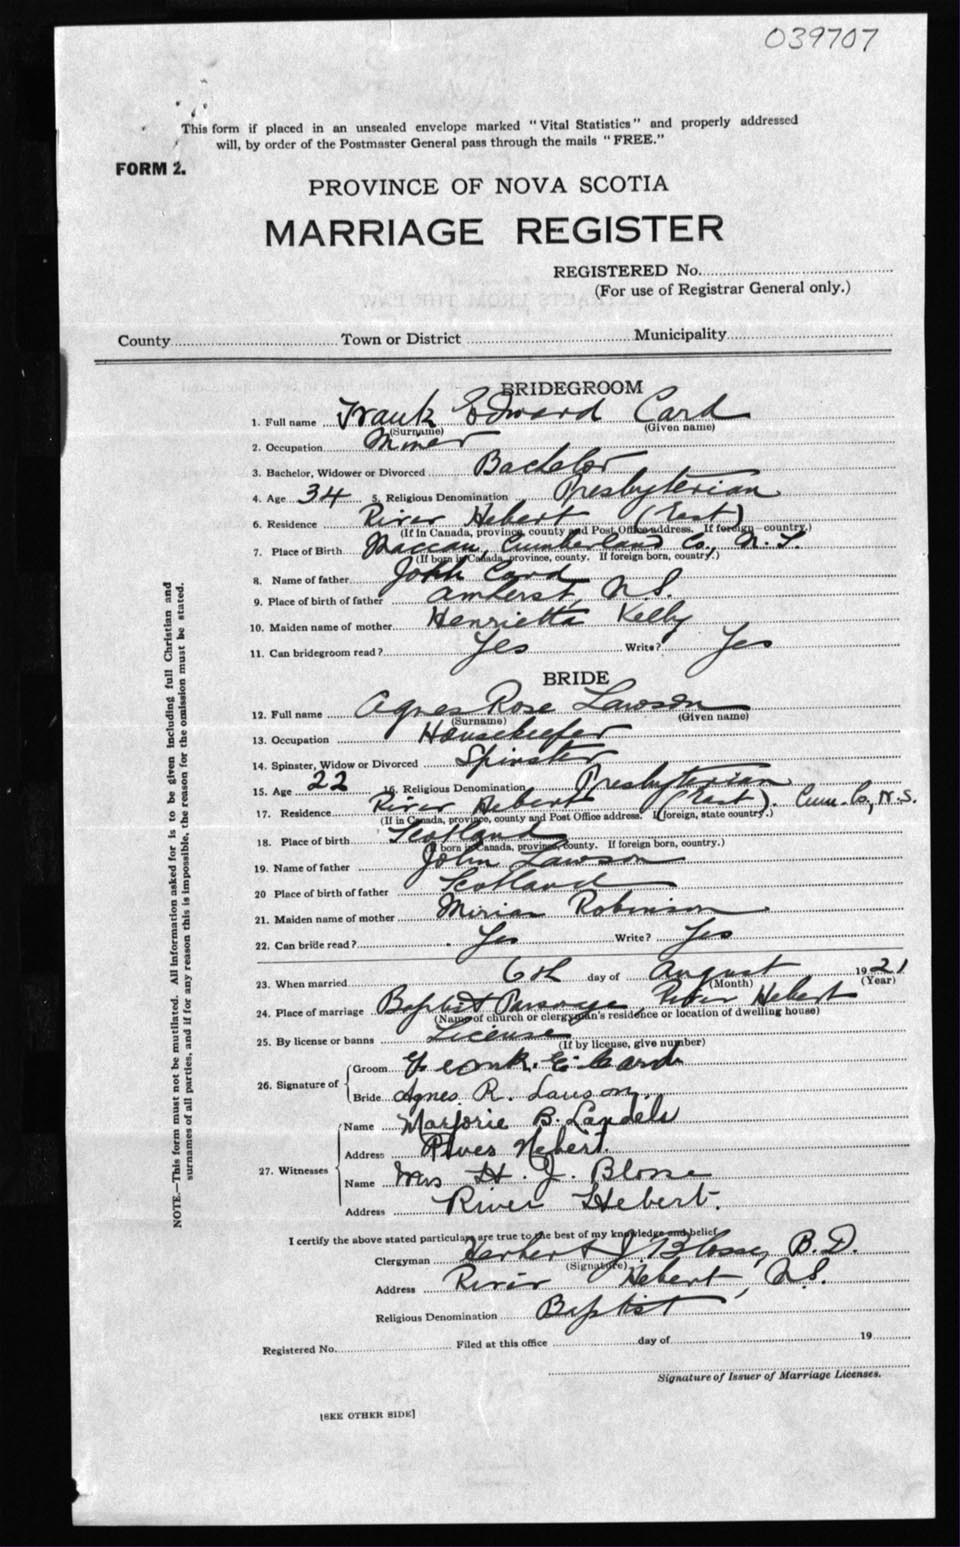 039707
This form if placed in an unsealed envelope marked "Vital Statistics" and properly addressed
will, by order of the Postmaster General pass through the mails "FREE."
FORM 2.
PROVINCE OF NOVA SCOTIA
MARRIAGE REGISTER
REGISTERED No.
(For use of Registrar General only.)
County Town or District Municipality
BRIDEGROOM
1. Full name Frank Edward Card
(Surname) (Given name)
2. Occupation Miner
3. Bachelor, Widower or Divorced Bachelor
4. Age 34 5. Religious Denomination Presbyterian
6. Residence River Hebert (East)
(If in Canada, province, county and Post Office address. If foreign country.)
7. Place of Birth Maccan, Cumberland Co., N.S.
(If born in Canada, province, county. If foreign born, country.)
8. Name of father John Card
9. Place of birth of father Amherst, N.S.
10. Maiden name of mother Henrietta Kelly
11. Can bridegroom read? Yes Write? Yes
BRIDE
12. Full name Agnes Rose Lawson
(Surname) (Given name)
13. Occupation Housekeeper
14. Spinster, Widow or Divorced Spinster
15. Age 22 16. Religious Denomination Presbyterian
17. Residence River Hebert (East). Cum. Co, N.S.
(If in Canada, province, county and Post Office address. If foreign, state country.)
18. Place of birth Scotland
(If born in Canada, province, county. If foreign born, country.)
19. Name of father John Lawson
20 Place of birth of father Scotland
21. Maiden name of mother Miriam Robinson
22. Can bride read? Yes Write? Yes
23. When married 6th day of August 1921
(Month) (Year)
24. Place of marriage Baptist Parsonage, River Hebert
(Name of church or clergyman's residence or location of dwelling house)
25. By license or banns License
(If by license, give number)
26. Signature of Groom Frank. E. Card
Bride Agnes. R. Lawson.
27. Witnesses Name Marjorie B. Landels
Address River Hebert.
Name Mrs H. J. Blosse
Address River Hebert.
I certify the above stated particulars are true to the best of my knowledge and belief
Clergyman Herbert J Blosse, B.D.
(Signature)
Address River Hebert, N.S.
Religious Denomination Baptist
Registered No. Filed at this office day of 19
Signature of Issuer of Marriage Licenses.
[SEE OTHER SIDE]
NOTE.—This form must not be mutilated. All information asked for is to be given including full Christian and
surnames of all parties, and if for any reason this is impossible, the reason for the omission must be stated.